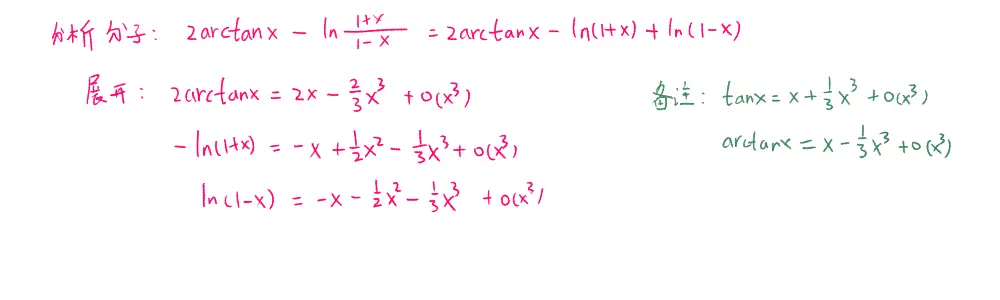 分析分子: 2arctanx - ln (1+x)/(1-x) = 2arctanx - ln(1+x) + ln(1-x)
展开: 2arctanx = 2x - 2/3 x³ + o(x³)
备注: tanx = x + 1/3 x³ + o(x³)
-ln(1+x) = -x + 1/2 x² - 1/3 x³ + o(x³)
arctanx = x - 1/3 x³ + o(x³)
ln(1-x) = -x - 1/2 x² - 1/3 x³ + o(x³)